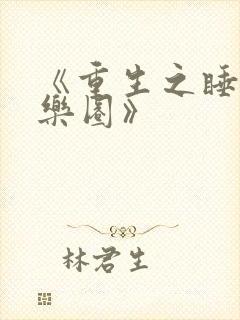 《重生之睡
樂園》
林君生